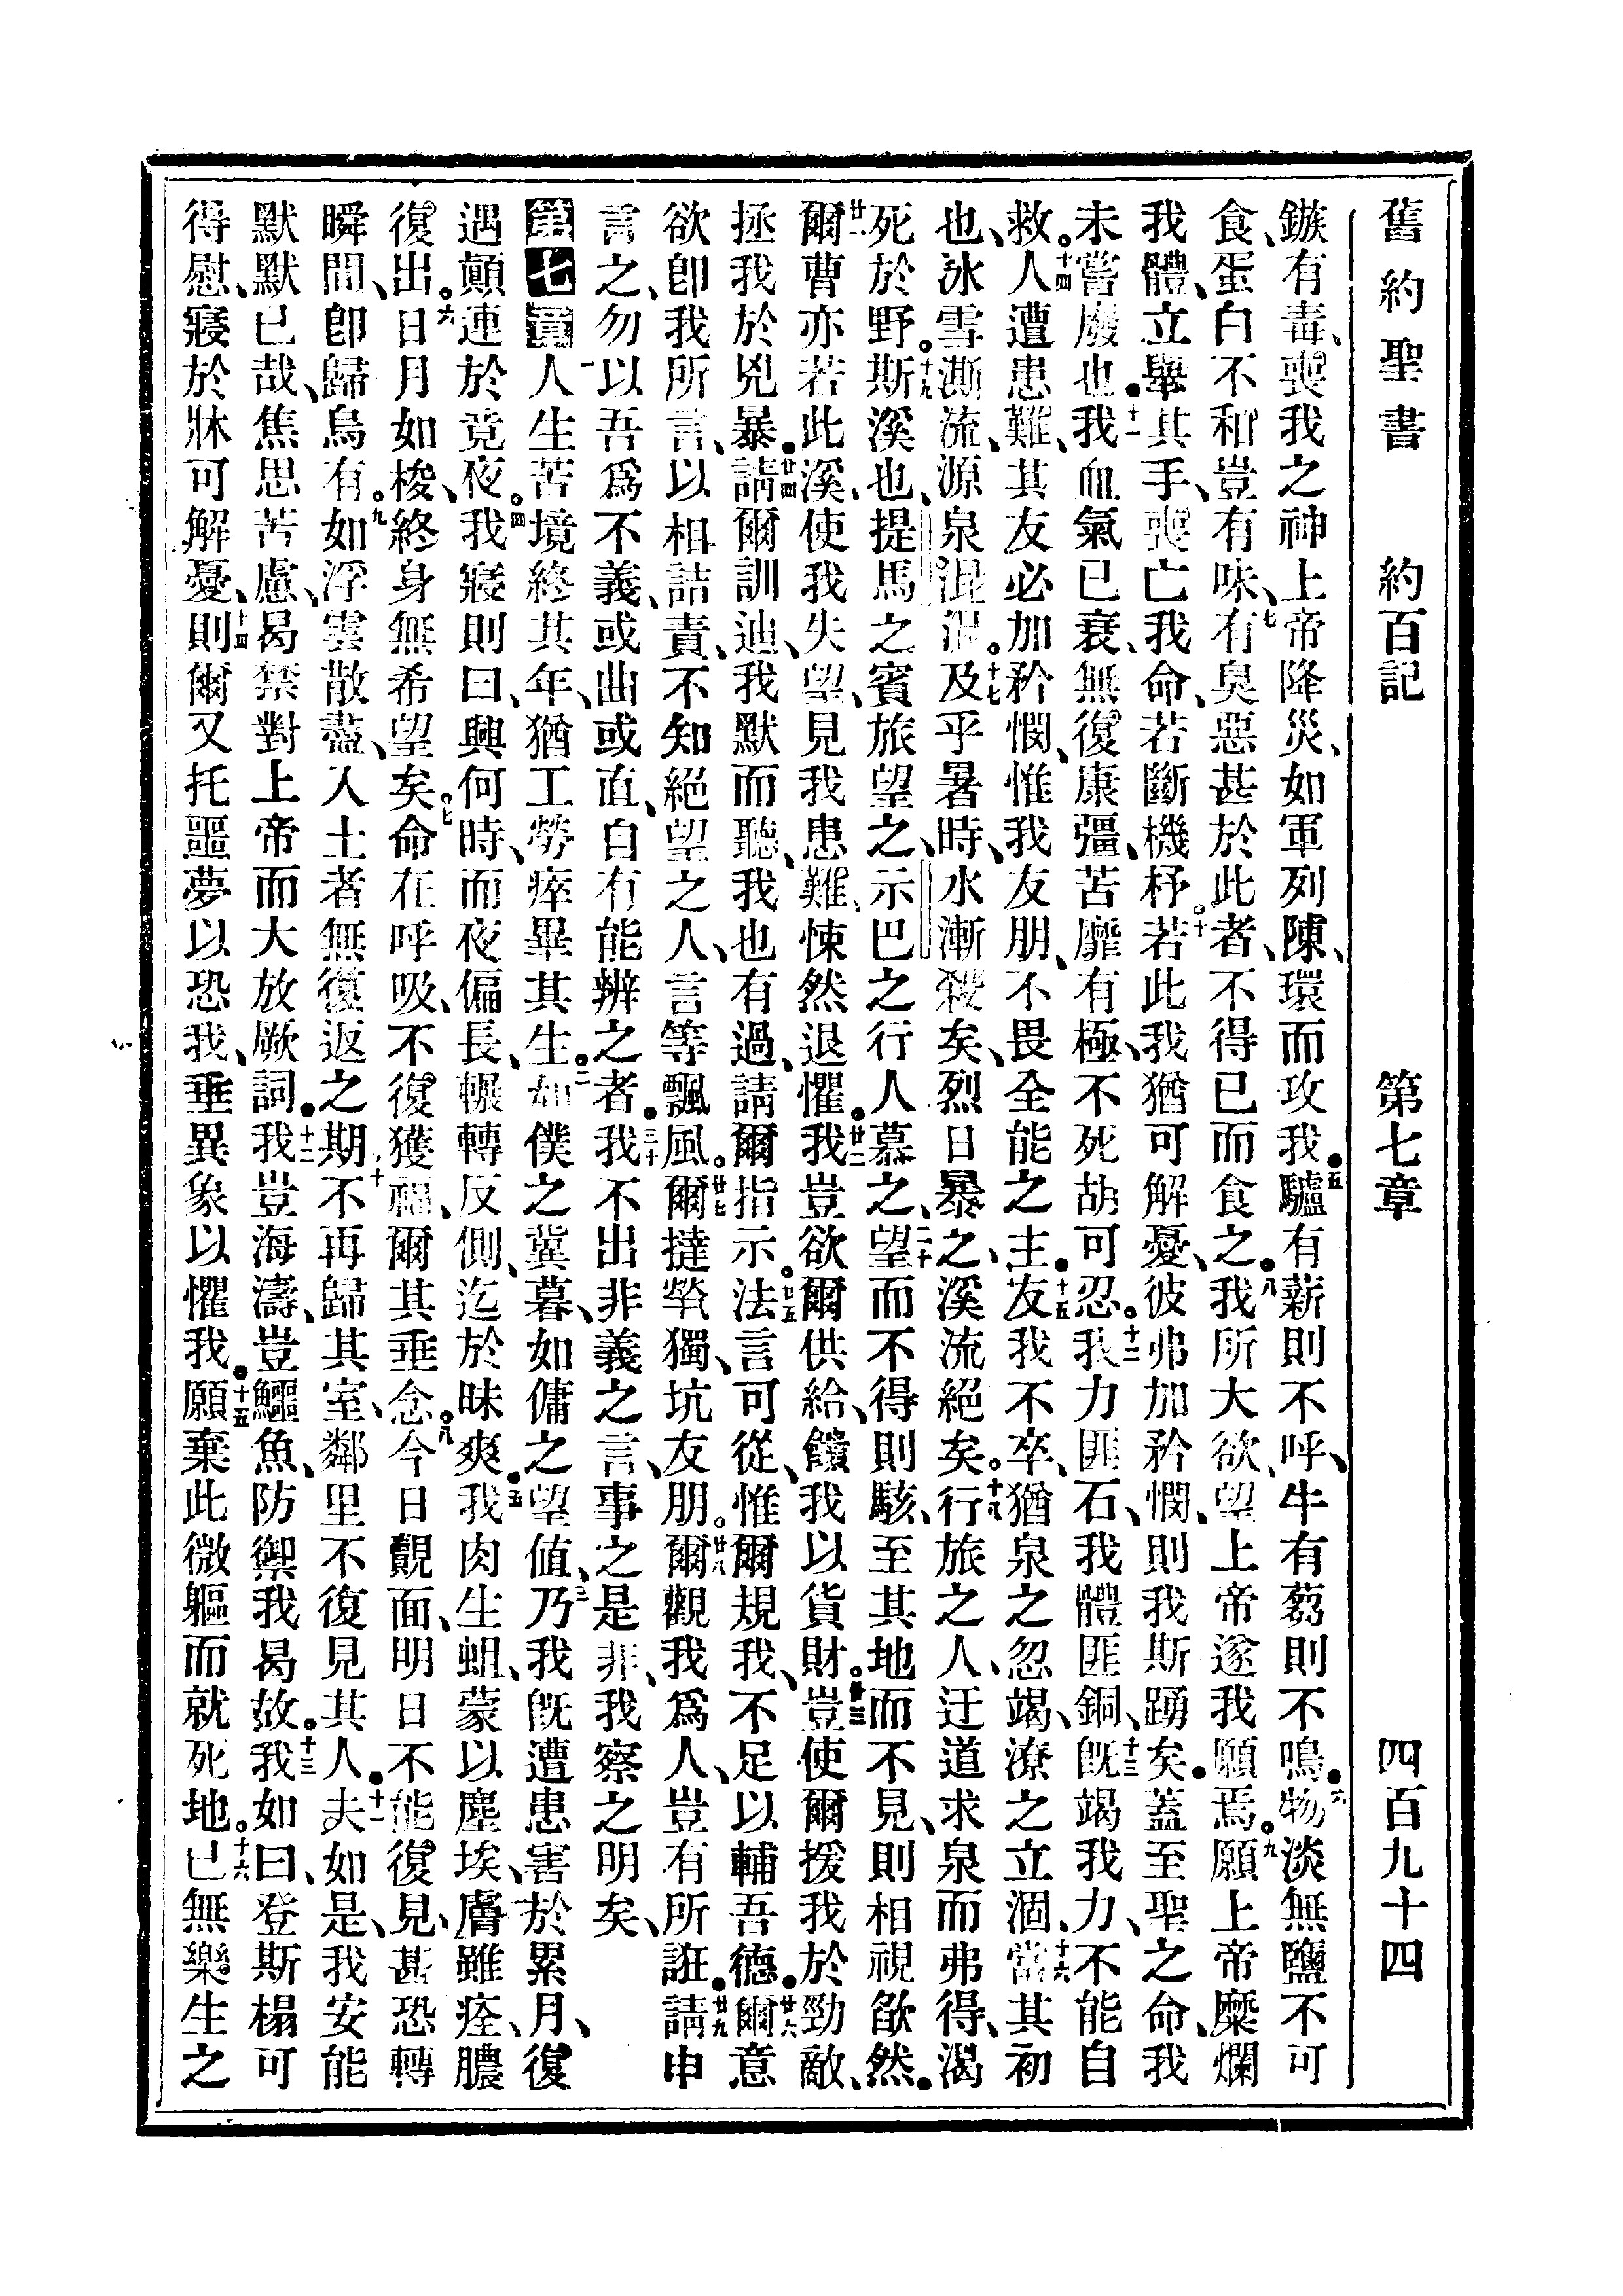 舊約聖書 約百記 第七章 四百九十四
鏃有毒、喪我之神上帝降災、如軍列陳、環而攻我。五驢有薪則不呼、牛有芻則不鳴。六物淡無鹽不可
食、蛋白不和豈有味、七有臭惡甚於此者、不得已而食之。八我所大欲、望上帝遂我願焉。九願上帝糜爛
我體、立舉其手、喪亡我命、若斷機杼。十若此我猶可解憂、彼弗加矜憫、則我斯踴矣。蓋至聖之命、我
未嘗廢也。十一我血氣已衰、無復康彊、苦靡有極、不死胡可忍。十二我力匪石、我體匪銅、十三旣竭我力、不能自
救。十四人遭患難、其友必加矜憫、惟我友朋、不畏全能之主。十五友我不卒、猶泉之忽竭、潦之立涸、十六當其初
也、冰雪澌流、源泉混混。十七及乎暑時、水漸殺矣、烈日暴之、溪流絕矣。十八行旅之人、迂道求泉而弗得、渴
死於野。十九斯溪也、提馬之賓旅望之、示巴之行人慕之、二十望而不得則駭、至其地而不見、則相視欿然。
廿一爾曹亦若此溪、使我失望、見我患難、悚然退懼。廿二我豈欲爾供給、饋我以貨財。廿三豈使爾援我於勁敵、
拯我於兇暴。廿四請爾訓迪、我默而聽、我也有過、請爾指示。廿五法言可從、惟爾規我、不足以輔吾德。廿六爾意
欲卽我所言、以相詰責、不知絕望之人、言等飄風。廿七爾撻煢獨、坑友朋。廿八爾觀我爲人、豈有所誑。廿九請申
言之、勿以吾爲不義、或曲或直、自有能辨之者。三十我不出非義之言、事之是非、我察之明矣、
第七章 一人生苦境終其年、猶工勞瘁畢其生。二如僕之冀暮、如傭之望值、三乃我旣遭患害於累月、復
遇顚連於竟夜。四我寢則曰、興何時、而夜偏長、輾轉反側、迄於昧爽。五我肉生蛆、蒙以塵埃、膚雖痊、膿
復出。六日月如梭、終身無希望矣。七命在呼吸、不復獲福、爾其垂念。八今日覿面、明日不能復見、甚恐轉
瞬間、卽歸烏有。九如浮雲散盡、入土者無復返之期、十不再歸其室、鄰里不復見其人。十一夫如是、我安能
默默已哉、焦思苦慮、曷禁對上帝而大放厥詞。十二我豈海濤、豈鱷魚、防禦我曷故。十三我如曰、登斯榻可
得慰、寢於牀可解憂、十四則爾又托噩夢以恐我、垂異象以懼我。十五願棄此微軀而就死地。十六已無樂生之